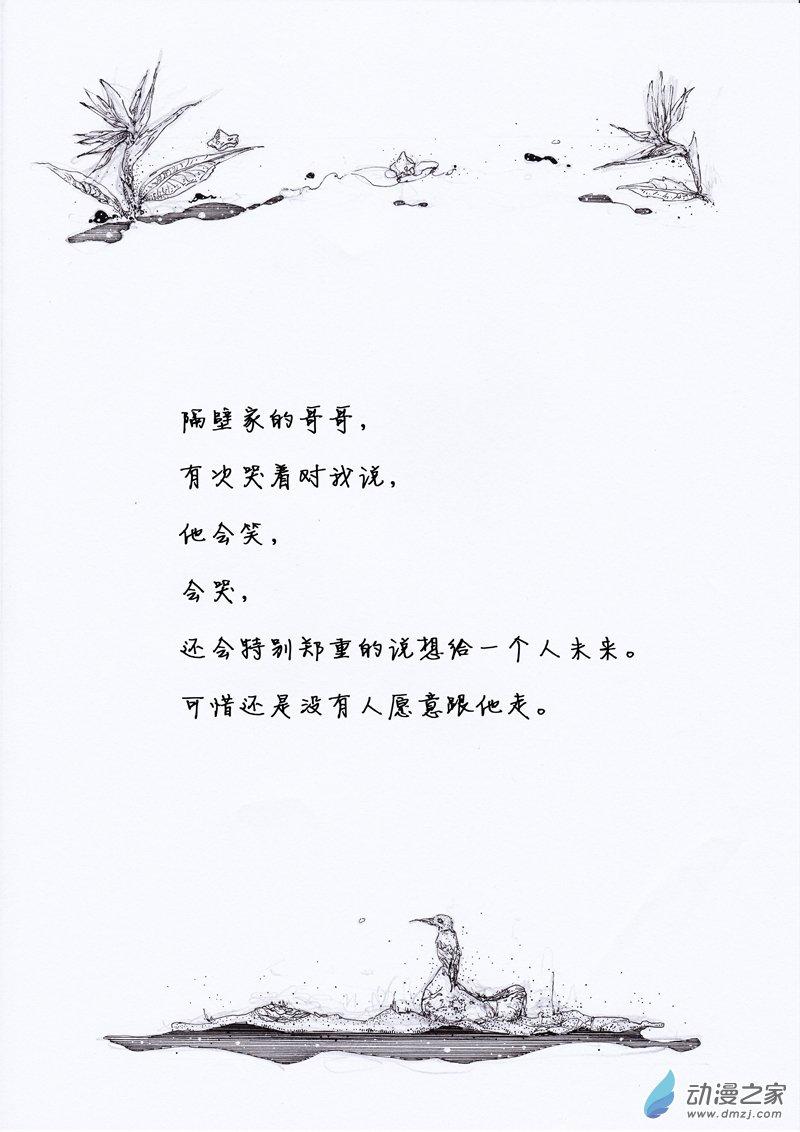 隔壁家的哥哥，
有次哭着对我说，
他会笑，
会哭，
还会特别郑重的说想给一个人未来。
可惜还是没有人愿意跟他走。
动漫之家
www.dmzj.com